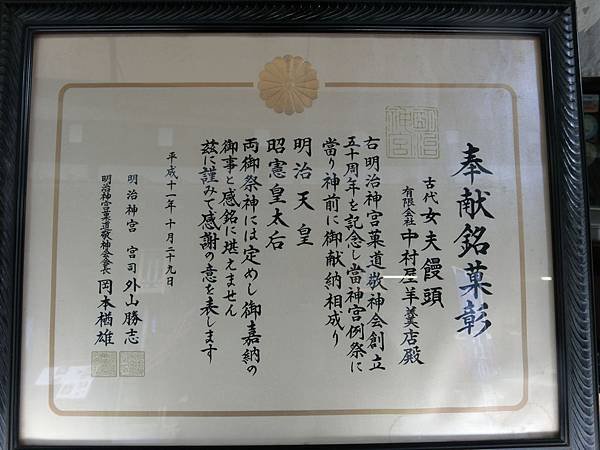 奉献銘菓彰
古代 女夫饅頭
有限会社 中村屋羊羹店殿
右明治神宮菓道敬神会創立
五十周年を記念し當神宮例祭に
當り神前に御献納相成り
明治天皇
昭憲皇太后
両御祭神には定めし御嘉納の
御事と感銘に堪えません
茲に謹みて感謝の意を表します
平成十一年十月二十九日
明治神宮 宮司 外山勝志
明治神宮菓道敬神会会長 岡本楢雄